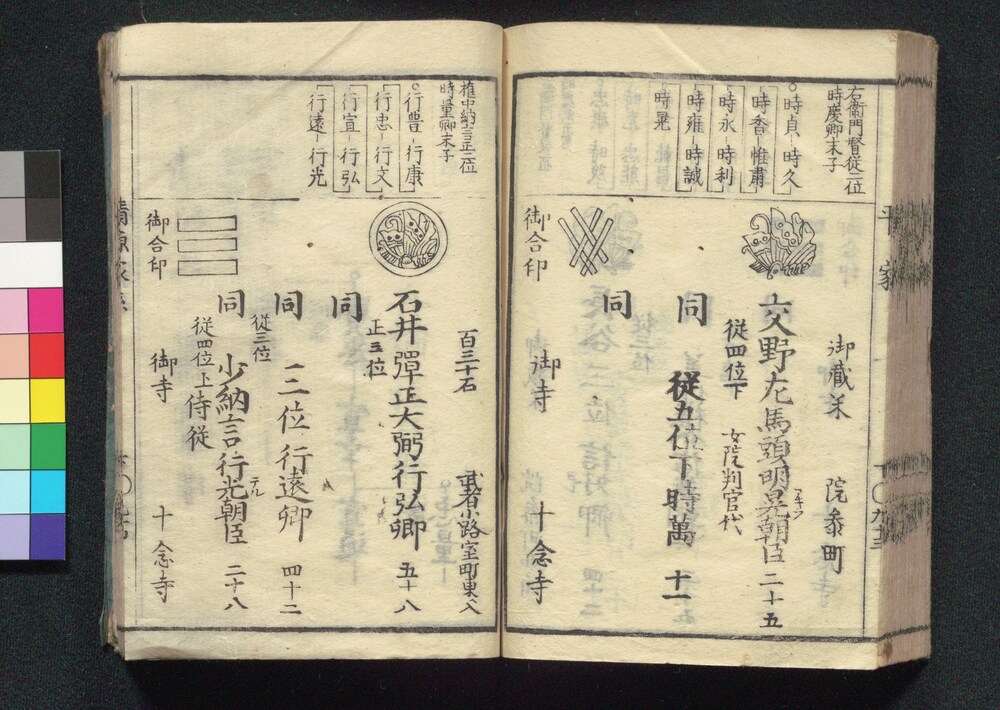 平家
右衛門督従二位
時慶卿末子
時貞 時久
時香 惟粛
時永 時利
時雍 時誠
時晃
御蔵米 院参町
交野左馬頭時晃朝臣 二十五
従四位下 女院判官代
同 従五位下時萬 十一
同
御合印 御寺 十念寺
権中納言正二位
時量卿末子
行豊 行康
行忠 行文
行宣 行弘
行遠 行光
百三十石 武者小路室町東入
石井弾正大弼行弘卿 五十八
正三位
同
同 三位行遠卿 四十二
従三位
同 少納言行光朝臣 二十八
テル
従四位上侍従
御合印 御寺 十念寺